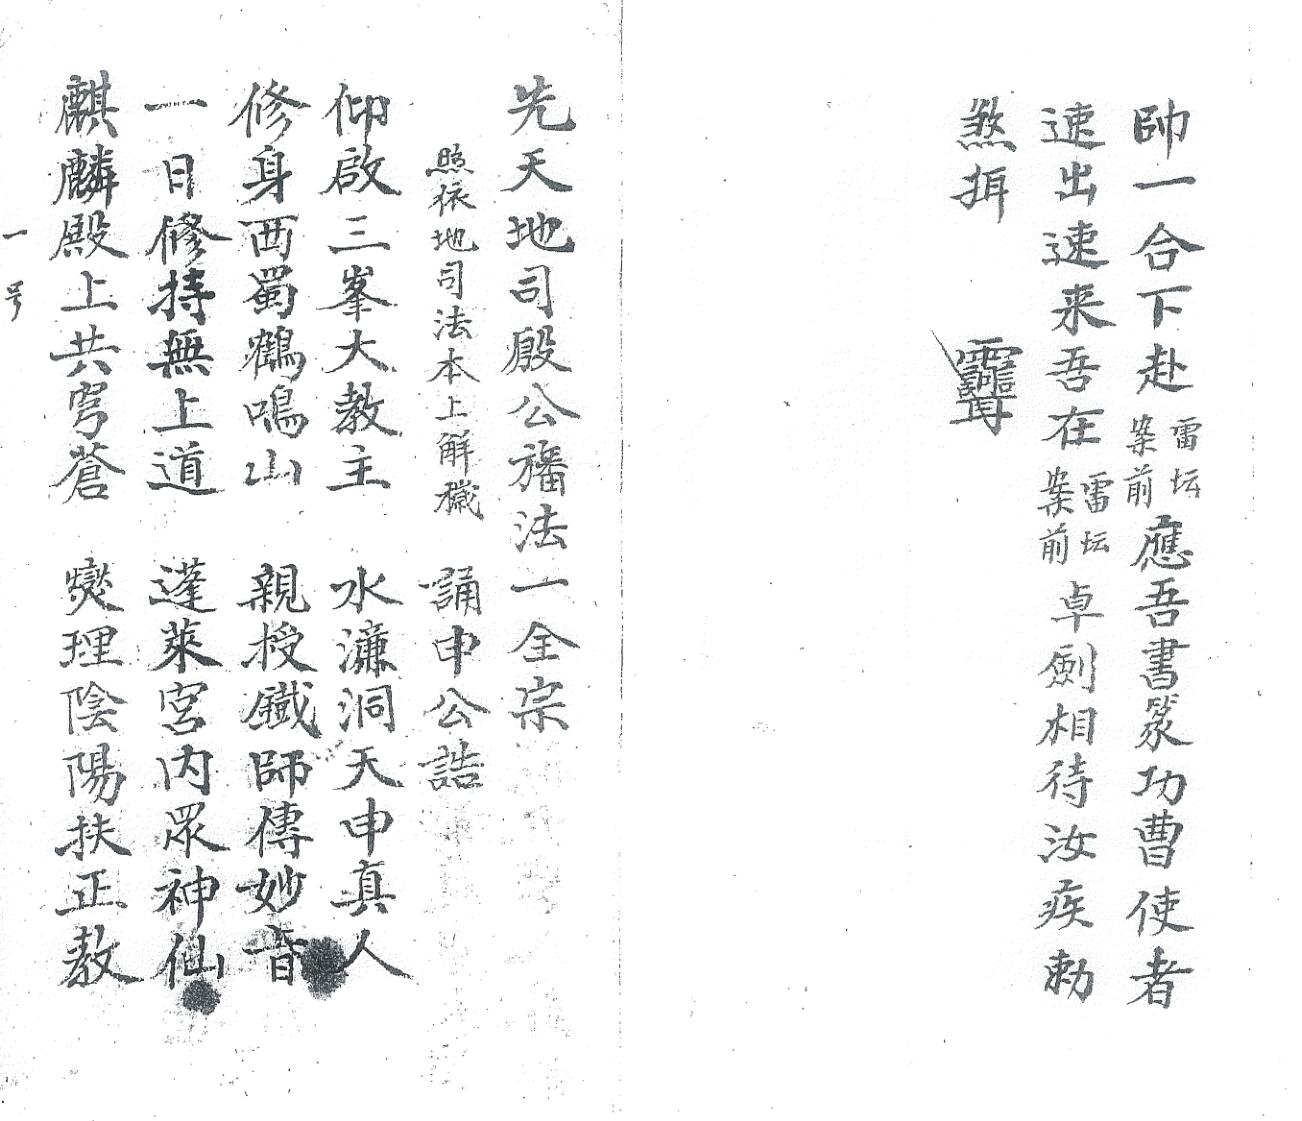 帥一合下赴雷坛案前應吾書篆功曹使者
速出速来吾在雷坛案前卓劍相待汝疾勅
煞揖
先天地司殷公旛法一全宗
照依地司法本上解穢 誦申公誥
仰啟三峯大教主 水濂洞天申真人
修身西蜀鶴鳴山 親授鐵師傳妙音
一日修持無上道 蓬萊宮内眾神仙
麒麟殿上共穹蒼 燮理陰陽扶正教
一号